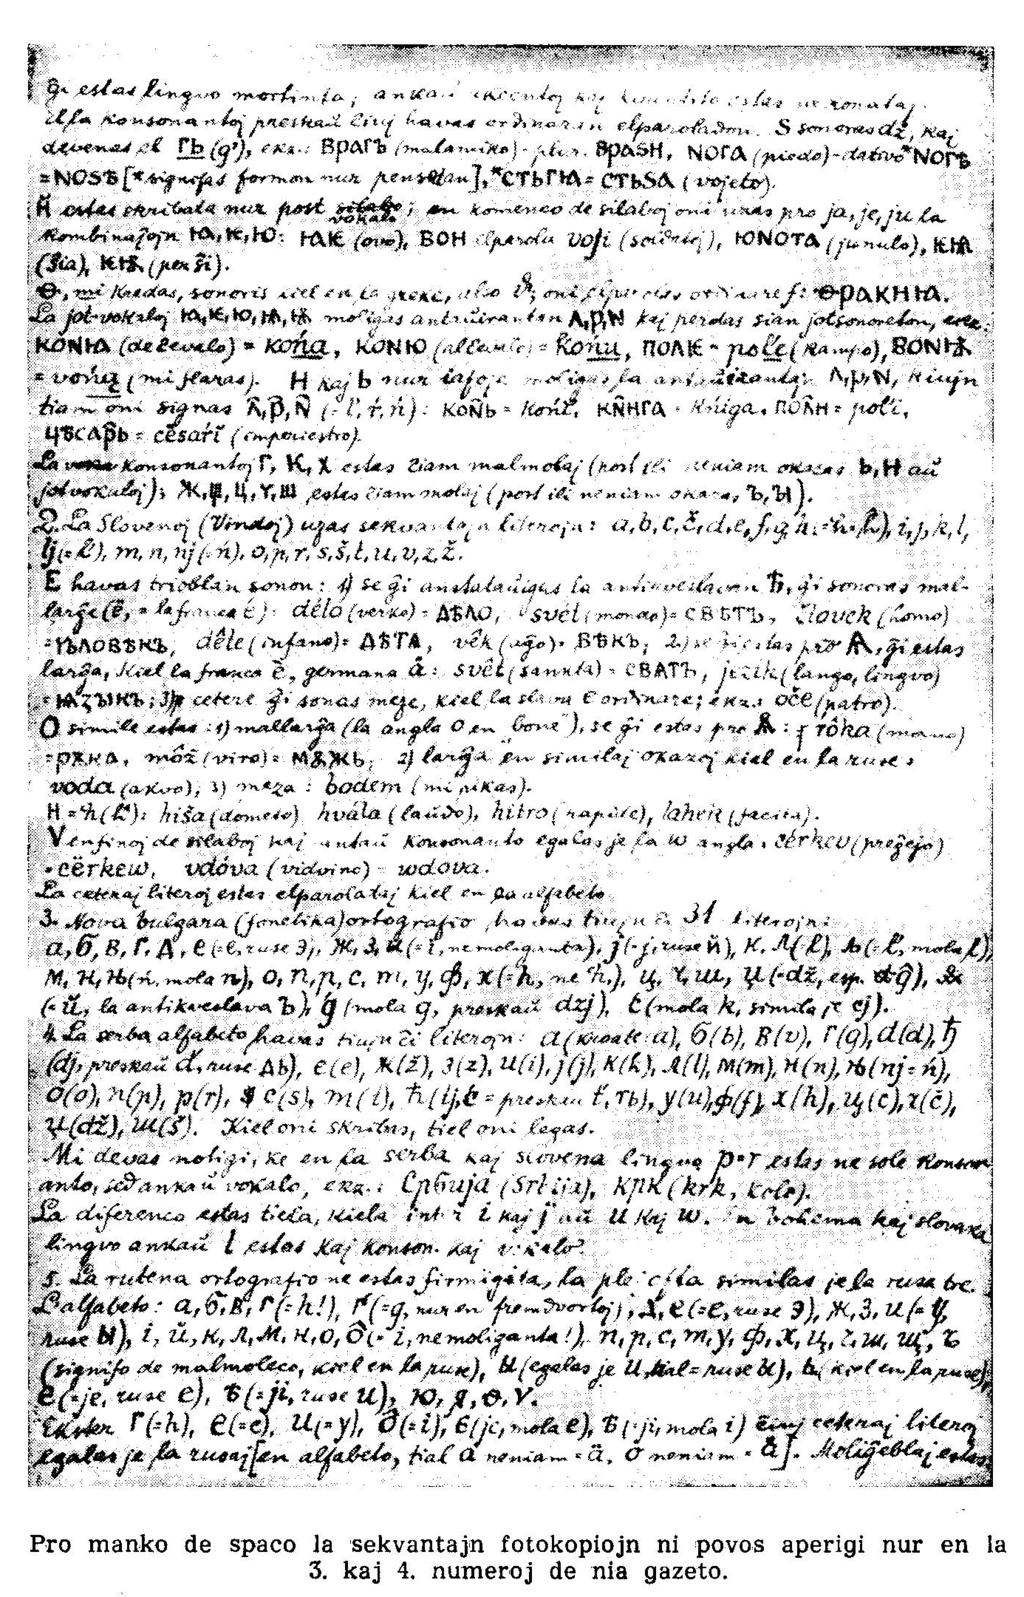 Ĝi estas lingvo mortinta, ankaŭ akcentoj kaj estas ne konataj.
La konsonantoj preskaŭ ĉiuj havas ordinaran elparoladon. S sonoras dź, kaj
devenas el ГЬ (g'), ekz.: ВРАГЪ (malamiko) - plur. ВРАЅН, NОГА (piedo) - dativo *NОГѢ
= NОЅѢ [* signifas formon nur pensatan], *СТЬГІА = СТЬЅА (vojeto).
Й estas skribata nur post vokalo; en komenco de silaboj oni uzas pro ja, je, ju la
kombinaĵojn ІА, Ѥ, Ю: ІАѤ (ovo), ВОН elparolu voji (soldatoj), ЮNОТА (junulo), ѤІѦ
(ŝia), ѤѬ (per ŝi).
Ѳ, mi kredas, sonoris kiel en la greka, oni elparolas ordinare f: ѲРАКНІА.
La jot-vokaloj ІА, Ѥ, Ю, Ѩ, Ѭ moligas antaŭirantan Л, Р, N kaj perdas sian jotsonoreton, ekz.:
КОNІА (de ĉevalo) = końa, КОNЮ (al ĉevalo) = końu, ПОЛѤ - pole (kampo), ВОNѬ
= vońą (mi flaras). Н kaj Ь nur iafoje moligas la antaŭirantajn Л, Р, N, kiujn
tiam oni signas Л̂, Р̂, N̂ (= l', ŕ, ń): КОN̂Ь = końĭ, КN̂НГА = kńiga, ПОЛ̂Н = pol'i,
ЦѢСАР̂Ь = cěsaŕĭ (imperiestro).
La konsonantoj Г, К, Х estas ĉiam malmolaj (post ili neniam okazas Ь, Н aŭ
jotvokaloj); Ж, Ц, Ч, Ш estas ĉiam molaj (post ili neniam okazas Ъ, Ы).
2. La Slovenoj (Vindoj) uzas sekvantajn literojn: a, b, c, č, d, e, f, g, h, i, j, k, l,
lj, m, n, nj (ń), o, p, r, s, š, t, u, v, z, ž.
E havas trioblan sonon: 1) se ĝi anstataŭigas la antikveslavan Ѣ, ĝi sonoras mal-
larĝe (ë, = la franca é): délo (verko) = ДѢЛО, svét (mondo) = СВѢТЪ, človek (homo)
= ЧЬЛОВѢКЪ, déte (infano) = ДѢТА, vék (aĝo) = ВѢКЪ; 2) se ĝi estas pro Ѧ, ĝi estas
larĝa, kiel la franca è, germana ä: svêt (sankta) = СВАТЪ, jezik (lango, lingvo)
= ѨЗЪІКЪ; 3) cetere ĝi sonas meze, kiel la slava e ordinare; ekz.: oče (patro).
O simile estas: 1) mallarĝa (la angla o en "bone"), se ĝi estas pro Ѫ: róka (mano)
= РѪКА, móž (viro) = МѪЖЬ; 2) larĝa en similaj okazoj kiel en la ruse:
voda (akvo); 3) meza: bodem (mi pikas).
H = ħ: hiša (dometo), hvála (laŭdo), hitro (rapide), lahek (facila).
V en finoj de silaboj kaj antaŭ konsonanto egalas je la w angla: cérkev (preĝejo)
= cërkew, vdóva (vidvino) = wdova.
La ceteraj literoj estas elparolataj kiel en la alfabeto.
3. Nova bulgara (fonetika) ortografio havas tiujn ĉi 31 literojn:
а, б, в, г, д, е (=e, ruse э), ж, з, и (=i, nemoliganta), j (=j, ruse й), к, л (=ł), љ (=l', mola l),
м, н, њ (ń, mola n), о, п, р, с, т, у, ф, х (=h, ne ħ), ц, ч, ш, џ (=dž, esp. ĝ),
(= ŭ, la antikveslava Ъ), ѓ (mola g, preskaŭ dzj), ћ (mola k, simila je cj).
4. La serba alfabeto havas tiujn ĉi literojn: a (kroate: a), б (b), в (v), г (g), d (d), ђ
(dj, preskaŭ d', ruse дь), е (e), ж (ž), з (z), и (i), j (j), к (k), л (l), м (m), н (n), њ (nj = ń),
о (o), п (p), р (r), с (s), т (t), ћ (tj, ć = preskaŭ t', ть), у (u), ф (f), х (h), ц (c), ч (č),
џ (dž), ш (š). Kiel oni skribas, tiel oni legas.
Mi devas notigi, ke en la serba kaj slovena lingvo р=r estas ne sole konson-
anto, sed ankaŭ vokalo, ekz.: Србија (Srbija), крк (krk, kolo).
La diferenco estas tiela, kiela inter i kaj j aŭ u kaj w. En bohema kaj slovaka
lingvo ankaŭ l estas kaj konson. kaj vokalo.
5. La rutena ortografio ne estas firmigita, la plej ofta similas je la rusa tre.
La alfabeto: а, б, в, г (=h!), ґ (=g, nur en fremdvortoj), д, е (=e, ruse э), ж, з, и (=y,
ruse ы), і, й, к, л, м, н, о, ô (=i, nemoliganta!), п, р, с, т, у, ф, х, ц, ч, ш, щ, ъ
(signifo de malmoleco, kiel en la ruse), ы (egalas je и, kial = ruse ы), ь (kiel en la ruse),
є (=je, ruse е), ѣ (=ji, ruse и), ю, я, ѳ, ѵ.
Ekster г (=h), е (=e), и (=y), ô (=i), є (je, mola e), ѣ (=ji, mola i) ĉiuj ceteraj literoj
egalas je la rusaj [en alfabeto, tial a neniam = ä, o neniam = å]. Moligeblaj estas
Pro manko de spaco la sekvantajn fotokopiojn ni povos aperigi nur en la
3. kaj 4. numeroj de nia gazeto.